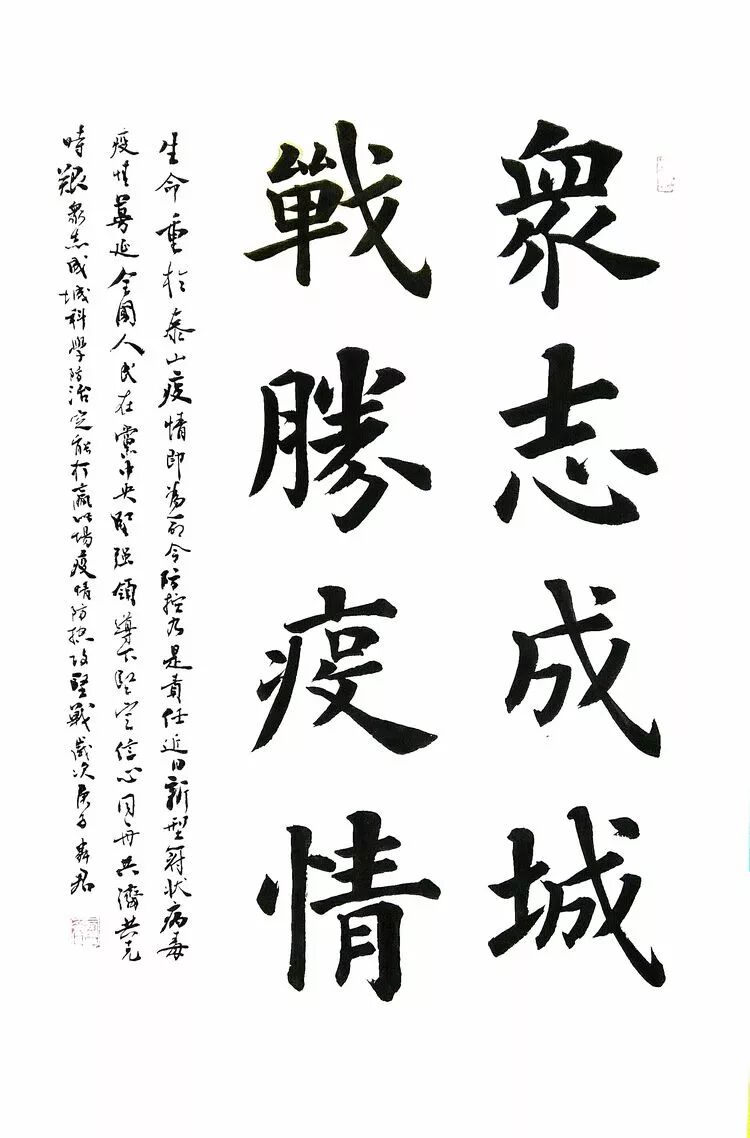 衆志成城
戰勝疫情
生命重於泰山疫情即為命令防控乃是責任近日新型冠狀病毒
疫情蔓延全國人民在黨中央堅强領導下堅定信心同舟共濟共克
時艱衆志成城科學防治定能打贏這場疫情防控攻堅戰歲次庚子